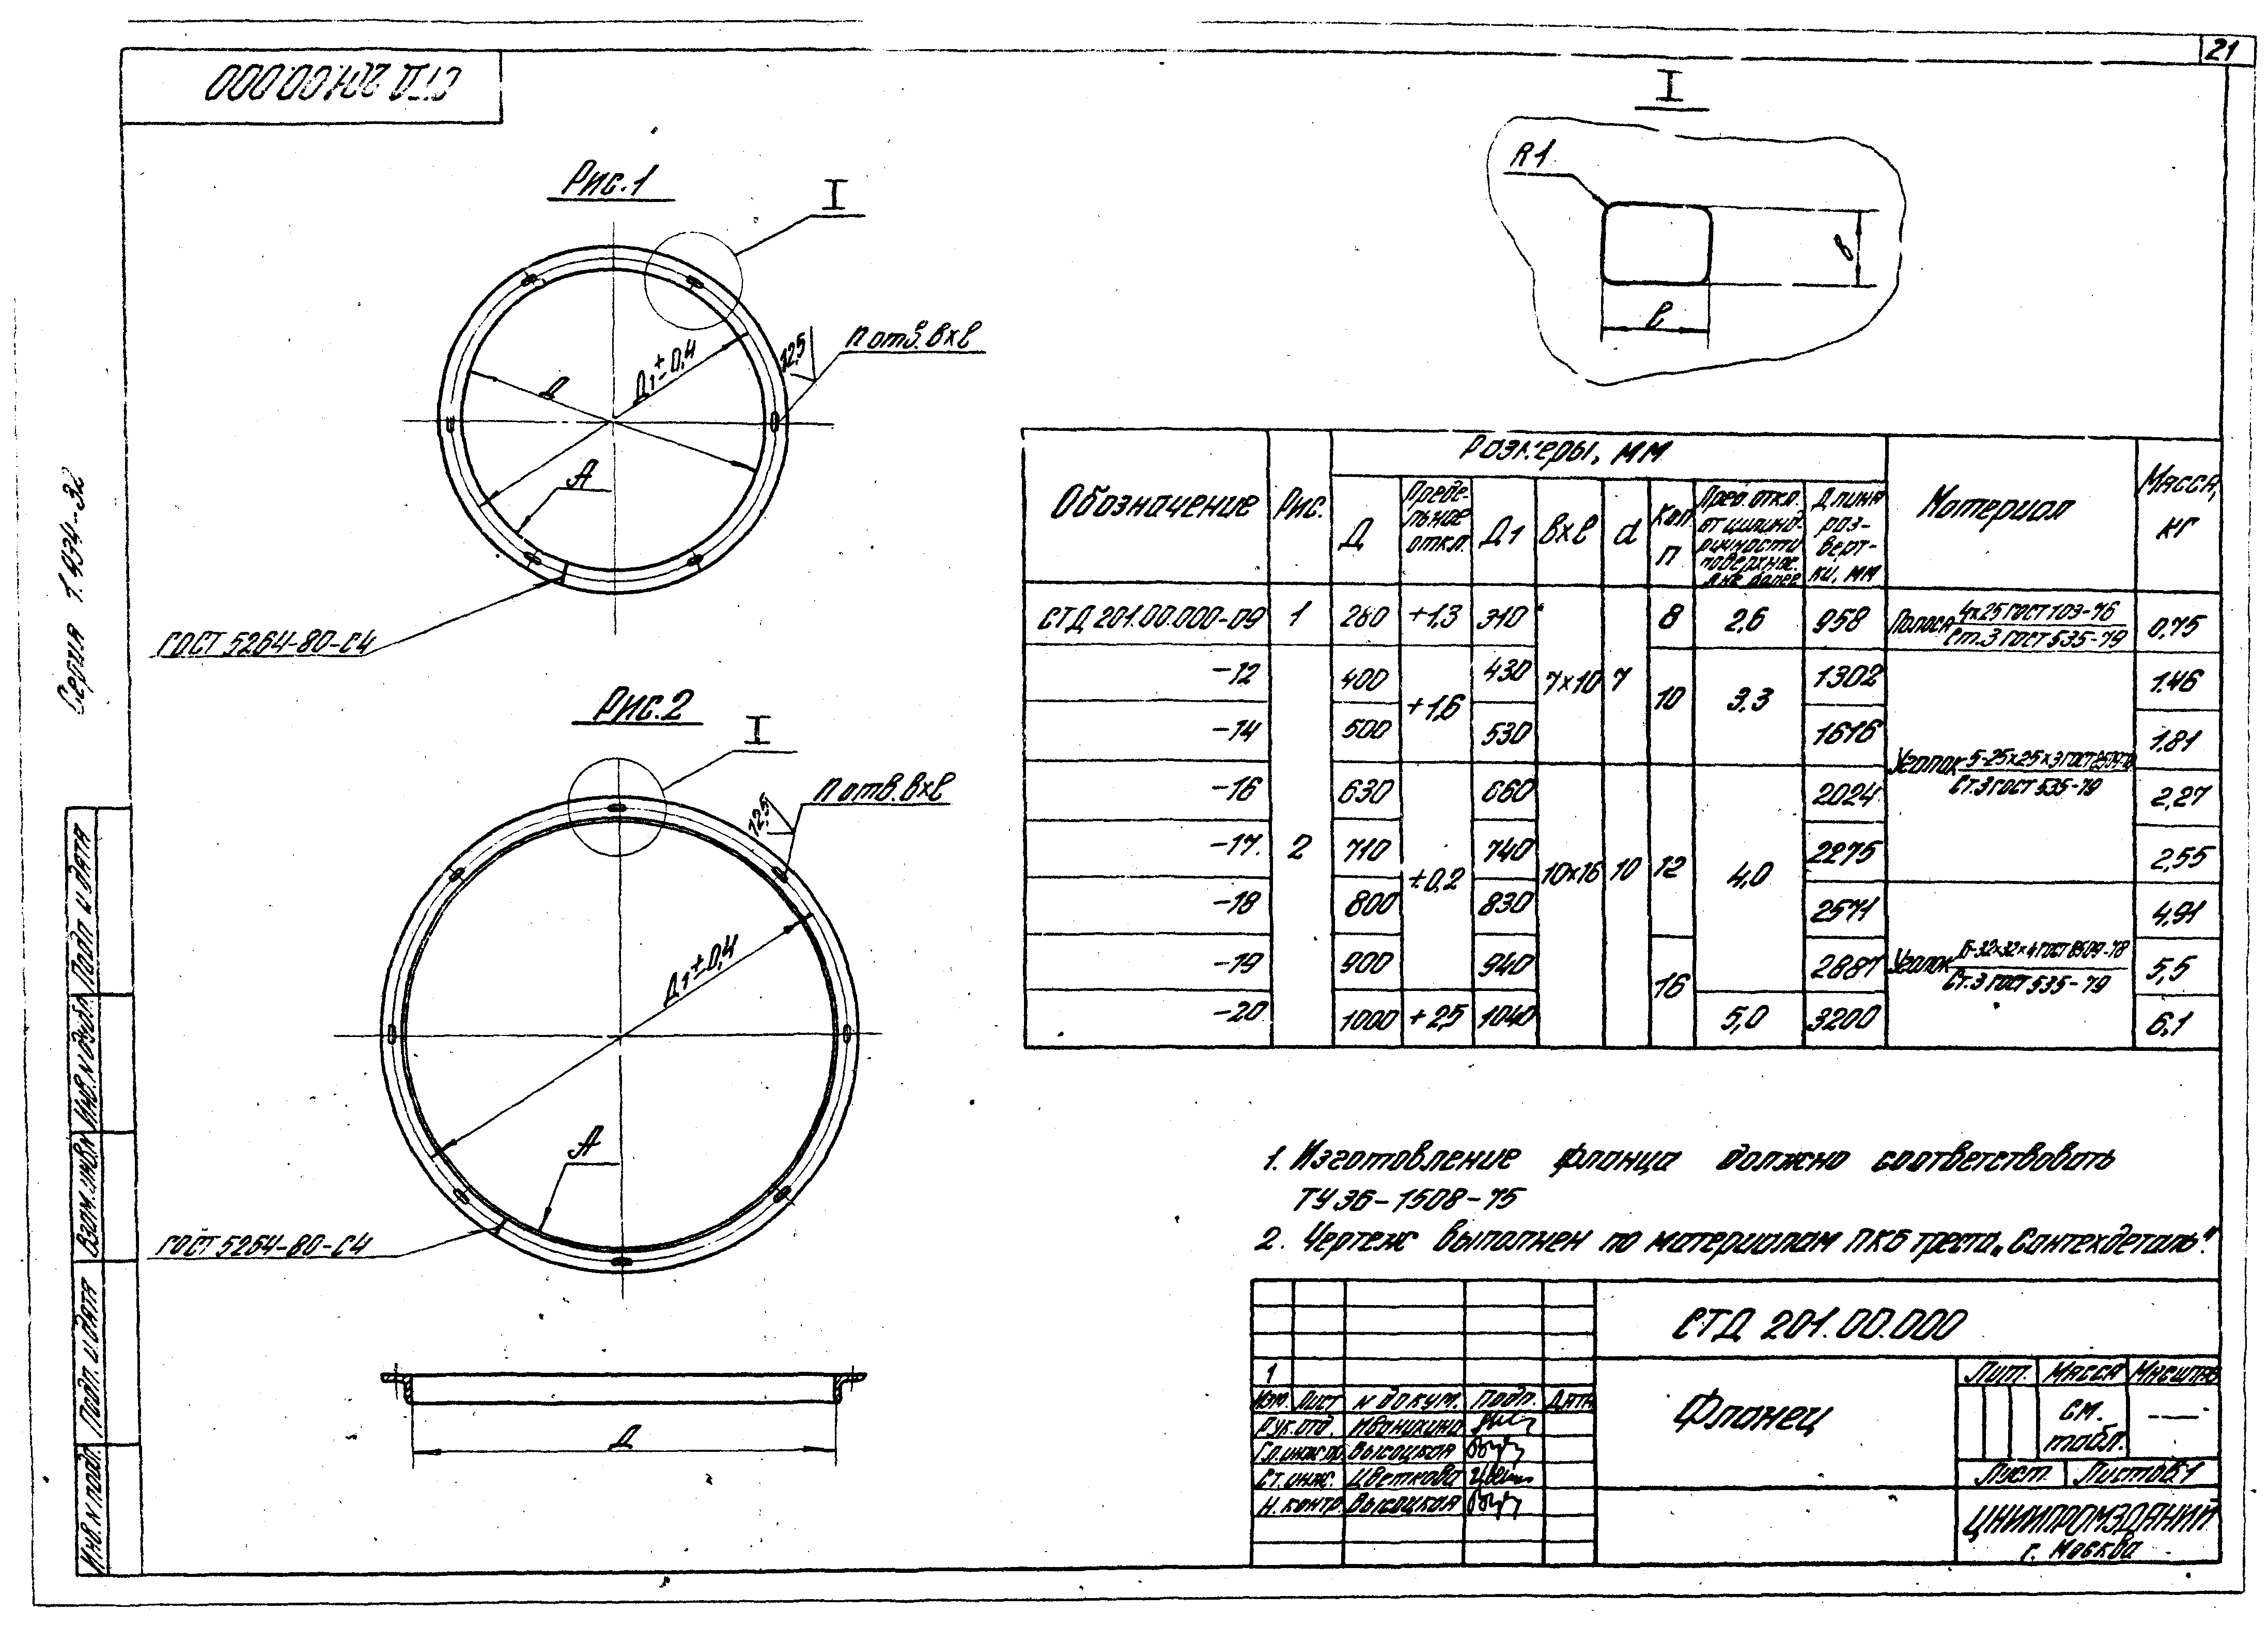 21
СТД 201.00.000
Серия 1.494-32
Рис.1
I
Д
Д1±0,4
12,5
n отв. вхℓ
А
ГОСТ 5264-80-С4
Рис.2
I
12,5
n отв. вхℓ
Д1±0,4
А
ГОСТ 5264-80-С4
Д
I
R1
в
ℓ
Обозначение Рис. Размеры, мм Материал Масса, кг
Д Предельное откл. Д1 вхℓ d Кол. n Пред. откл. от цилиндричности поверхнос. А не более Длина развертки, мм
СТД 201.00.000-09 1 280 +1,3 310 7х10 7 8 2,6 958 Полоса 4х25 ГОСТ 103-76 / Ст.3 ГОСТ 535-79 0,75
-12 2 400 +1,6 430 10 3,3 1302 Уголок Б-25х25х3 ГОСТ 8509-78 / Ст.3 ГОСТ 535-79 1.46
-14 500 530 1616 1.81
-16 630 ±0,2 660 10х16 10 12 4,0 2024 2,27
-17 710 740 2275 2,55
-18 800 830 2571 Уголок Б-32х32х4 ГОСТ 8509-78 / Ст.3 ГОСТ 535-79 4,91
-19 900 940 16 2887 5,5
-20 1000 +2,5 1040 5,0 3200 6,1
1. Изготовление фланца должно соответствовать
ТУ 36-1508-75
2. Чертеж выполнен по материалам ПКБ треста „Сантехдеталь".
СТД 201.00.000
1
Изм. Лист N докум. Подп. Дата
Рук. отд. Иванихина
Гл. инж. пр. Высоцкая
Ст. инж. Цветкова
Н. контр. Высоцкая
Фланец
Лит. Масса Масштаб
см. табл. —
Лист Листов 1
ЦНИИПРОМЗДАНИЙ
г. Москва
Подп. и дата
Инв. N дубл.
Взам. инв. N
Подп. и дата
Инв. N подл.